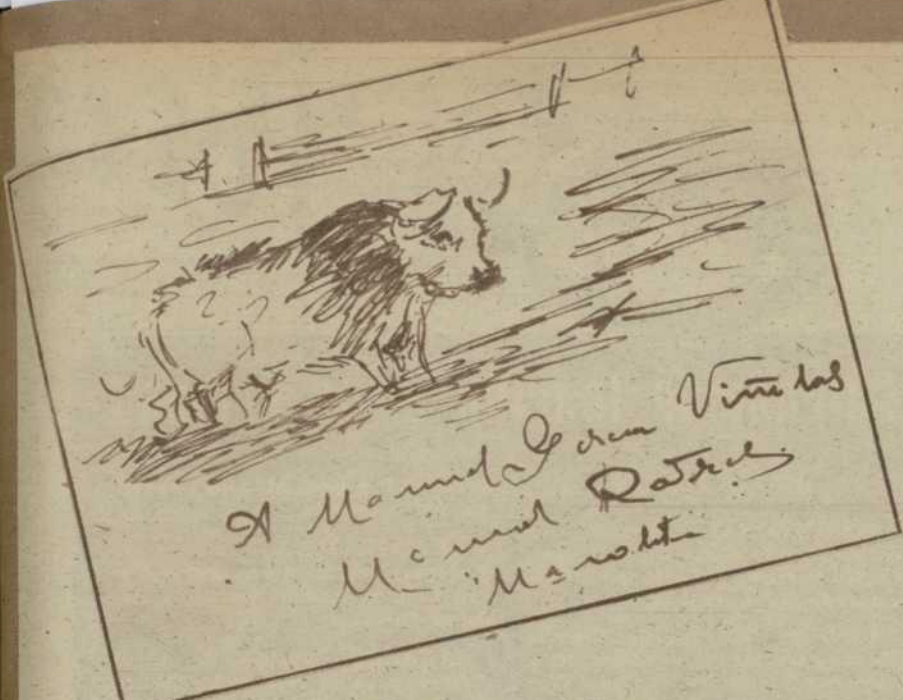 A Manuel Garcia Viñolas
Manuel Rodriguez
"Manolete"